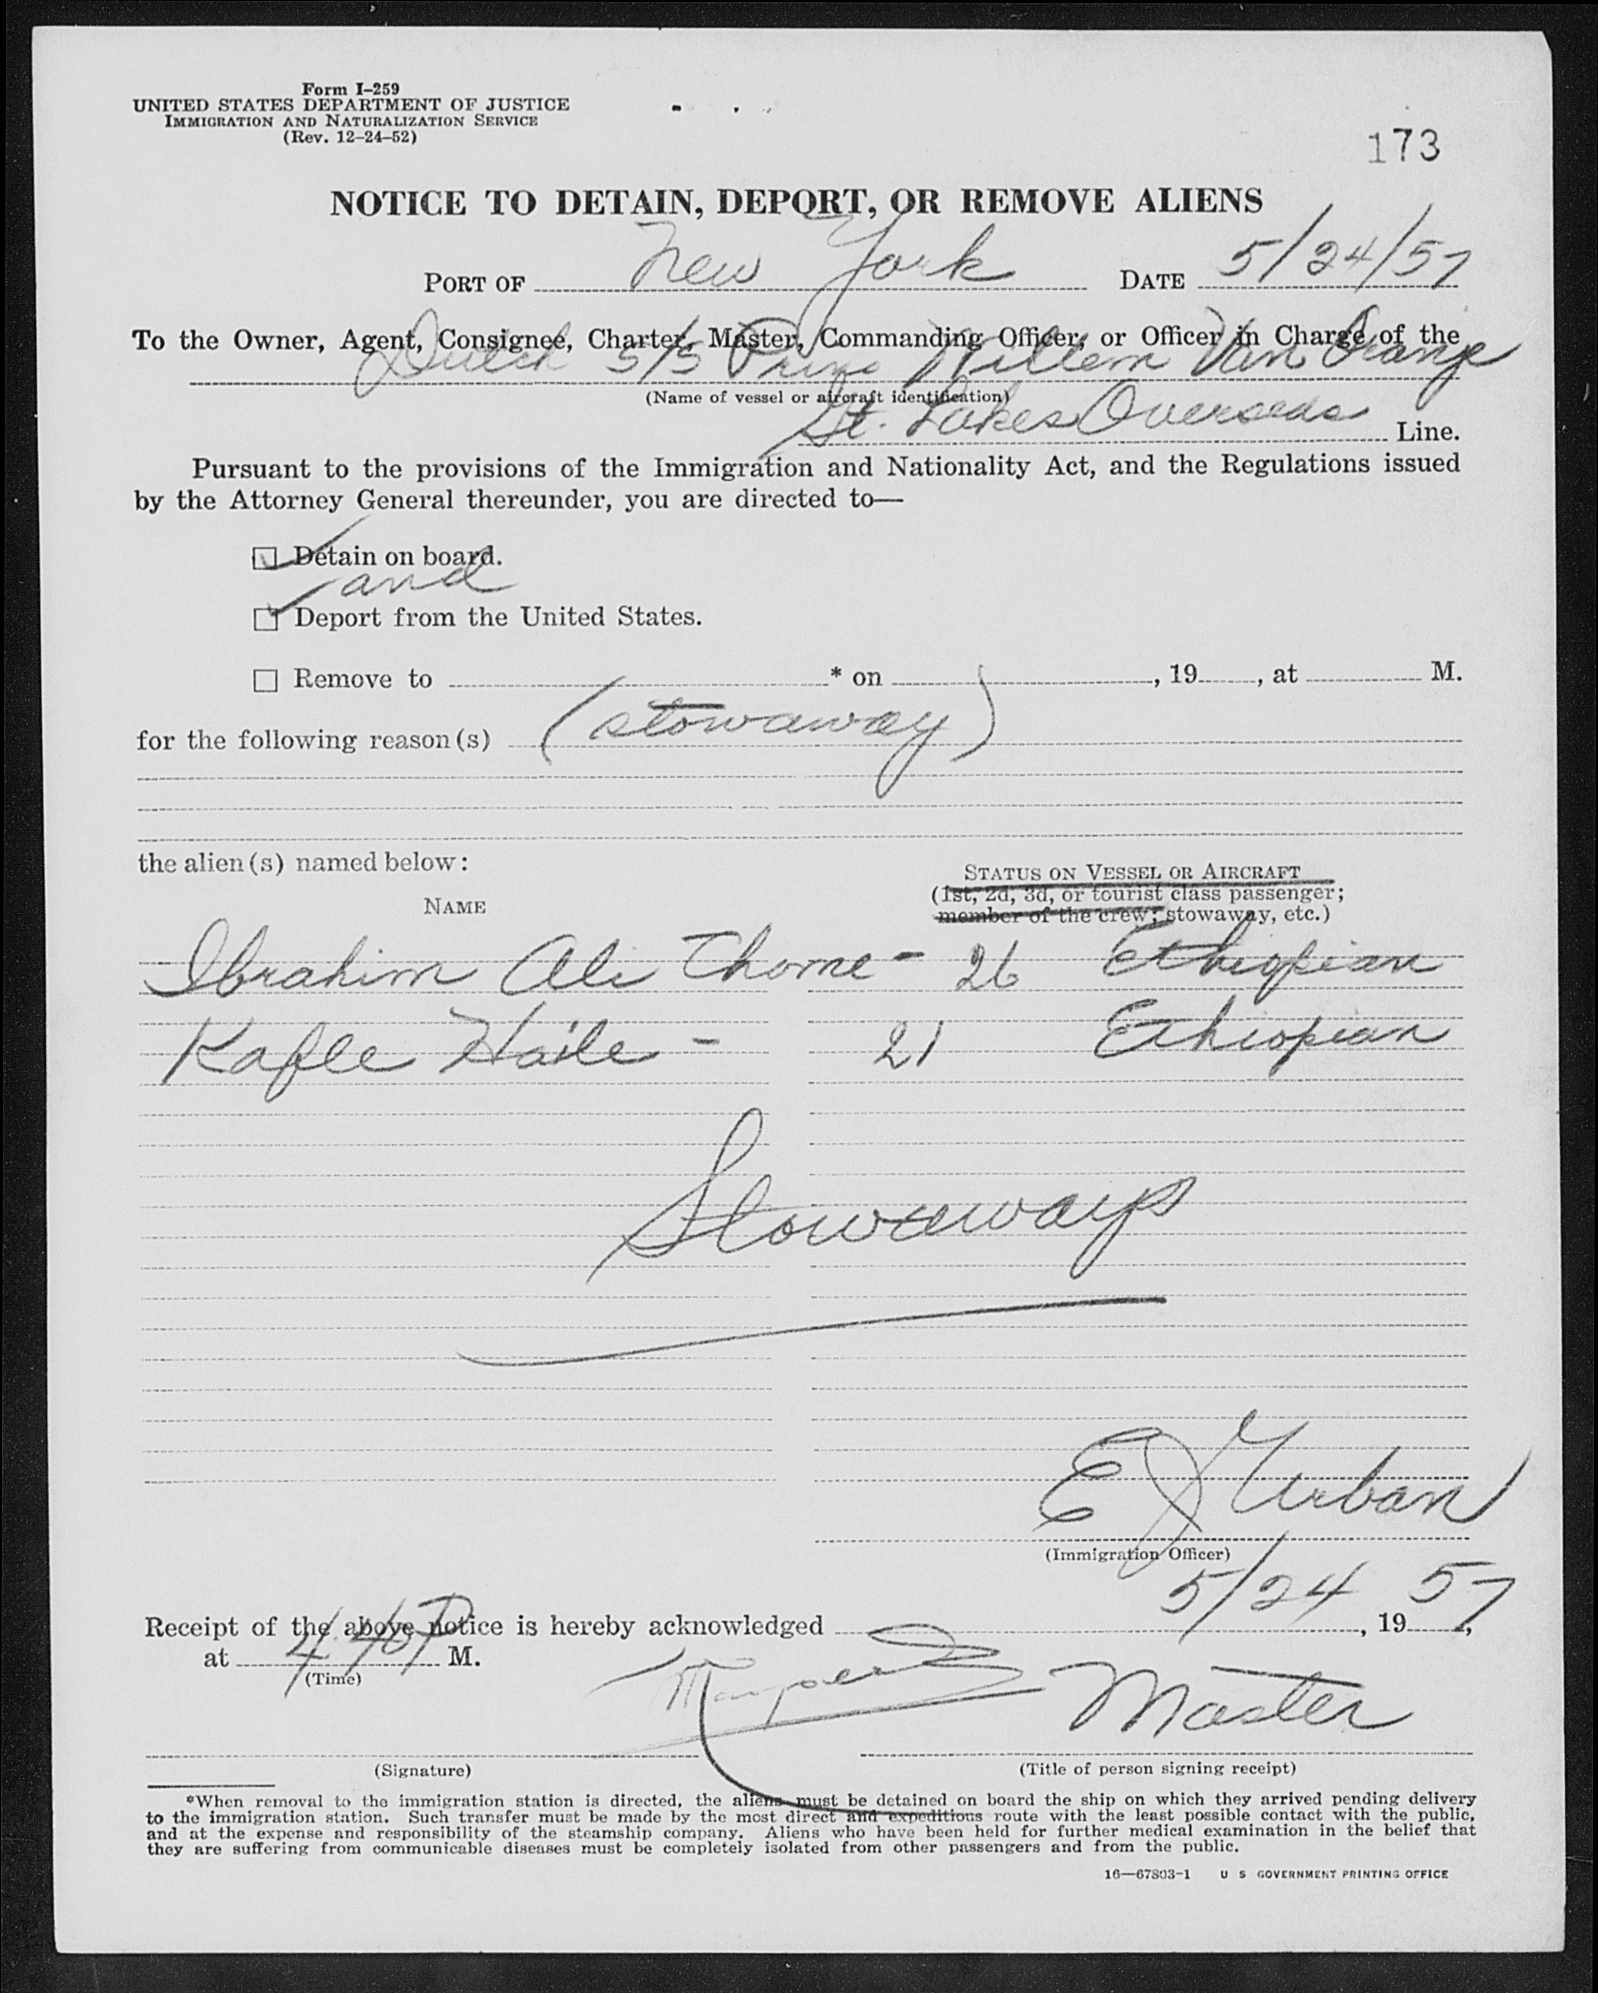 Form I–259
UNITED STATES DEPARTMENT OF JUSTICE
IMMIGRATION AND NATURALIZATION SERVICE
(Rev. 12–24–52)
173
NOTICE TO DETAIN, DEPORT, OR REMOVE ALIENS
PORT OF New York DATE 5/24/57
To the Owner, Agent, Consignee, Charter, Master, Commanding Officer, or Officer in Charge of the
Dutch S/S Prins Willem Van Oranje
(Name of vessel or aircraft identification)
Gt. Lakes Overseas Line.
Pursuant to the provisions of the Immigration and Nationality Act, and the Regulations issued
by the Attorney General thereunder, you are directed to—
Detain on board.
and
Deport from the United States.
Remove to * on , 19 , at M.
for the following reason(s) (stowaway)
the alien(s) named below:
STATUS ON VESSEL OR AIRCRAFT
(1st, 2d, 3d, or tourist class passenger;
NAME
member of the crew; stowaway, etc.)
Ibrahim Ali Thome - 26 Ethiopian
Kafle Haile - 21 Ethiopian
Stowaways
E J Urban
(Immigration Officer)
Receipt of the above notice is hereby acknowledged 5/24, 19 57,
at 4:40 P M.
(Time)
Master
(Signature) (Title of person signing receipt)
*When removal to the immigration station is directed, the aliens must be detained on board the ship on which they arrived pending delivery
to the immigration station. Such transfer must be made by the most direct and expeditious route with the least possible contact with the public,
and at the expense and responsibility of the steamship company. Aliens who have been held for further medical examination in the belief that
they are suffering from communicable diseases must be completely isolated from other passengers and from the public.
16—67803-1 U S GOVERNMENT PRINTING OFFICE